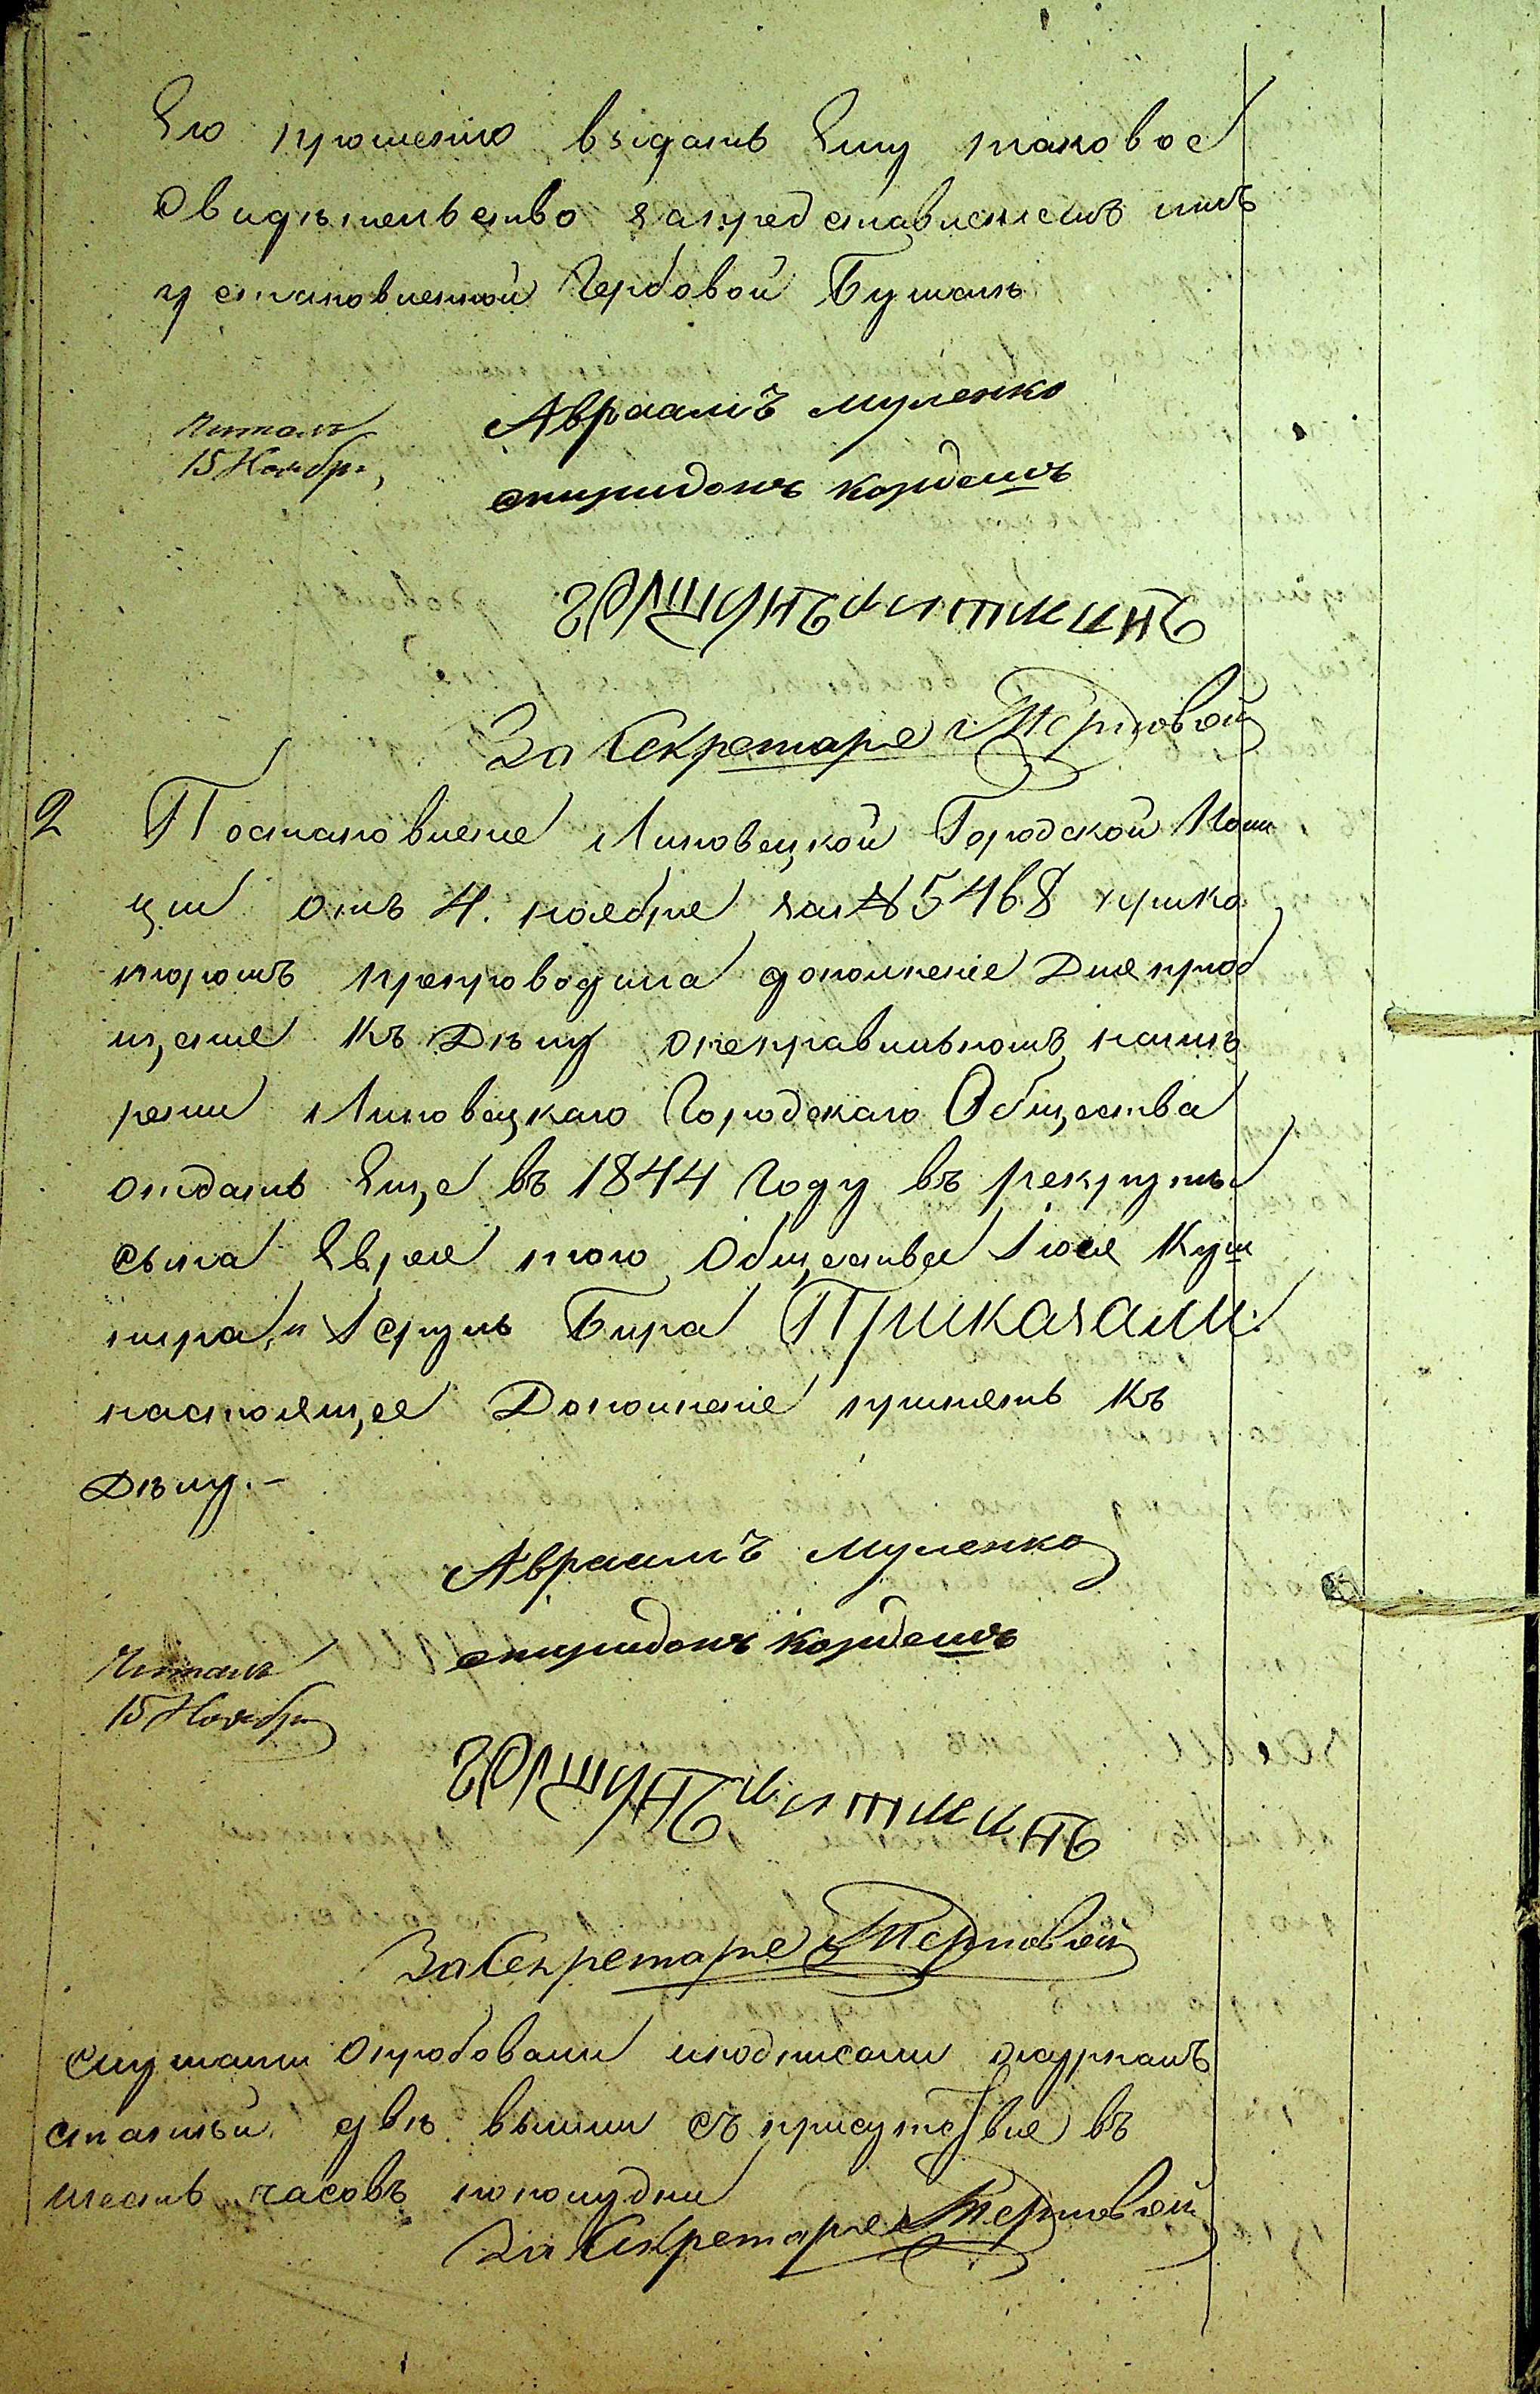 Его прошенію выдать Ему таковое
Свидѣтельство запредставленіемъ имъ
установленной Гербовой Бумаги
Авраамъ Муленко
Читалъ
15 Ноября
спиридонъ Кордашъ
За Секретаря Терновой
2 Постановленіе Липовецкой Городской Поли
ціи отъ 4. ноября за № 5468 прико
торомъ препроводила дополненіе Для пріоб
щенія къ Дѣлу онеправильномъ намѣ
реніи Липовецкаго Городского Общества
отдать Еще въ 1844 Году въ рекруты
сына Еврея того Общества Іося Куш
нира, Приказали:
настоящее Дополненіе пришить къ
Дѣлу. —
Авраамъ Муленко
спиридонъ Кордашъ
Читалъ
15 Ноября
За Секретаря Терновой
слушали опробовали иподписали журналъ
статьи двѣ вышли съ присутствія въ
шесть часовъ пополудни
За Секретаря Терновой